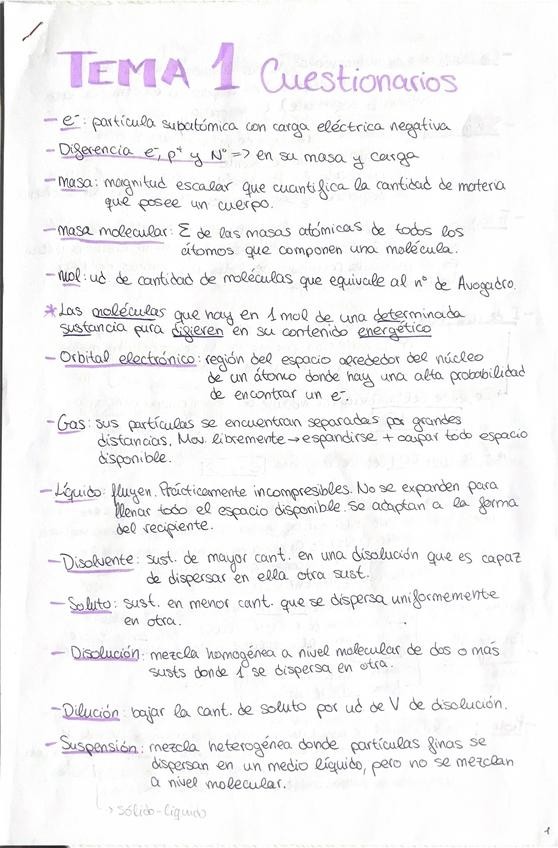 TEMA 1 Cuestionarios
- e⁻: partícula subatómica con carga eléctrica negativa
- Diferencia e⁻, p⁺ y Nº => en su masa y carga
- masa: magnitud escalar que cuantifica la cantidad de materia
que posee un cuerpo.
- masa molecular: Σ de las masas atómicas de todos los
átomos que componen una molécula.
- mol: ud de cantidad de moléculas que equivale al nº de Avogadro.
* Las moléculas que hay en 1 mol de una determinada
sustancia pura difieren en su contenido energético
- Orbital electrónico: región del espacio alrededor del núcleo
de un átomo donde hay una alta probabilidad
de encontrar un e⁻.
- Gas: sus partículas se encuentran separadas por grandes
distancias. Mov. libremente → espandirse + ocupar todo espacio
disponible.
- Líquido: fluyen. Prácticamente incompresibles. No se expanden para
llenar todo el espacio disponible. Se adaptan a la forma
del recipiente.
- Disolvente: sust. de mayor cant. en una disolución que es capaz
de dispersar en ella otra sust.
- Soluto: sust. en menor cant. que se dispersa uniformemente
en otra.
- Disolución: mezcla homogénea a nivel molecular de dos o más
susts donde 1 se dispersa en otra.
- Dilución: bajar la cant. de soluto por ud de V de disolución.
- Suspensión: mezcla heterogénea donde partículas finas se
dispersan en un medio líquido, pero no se mezclan
a nivel molecular.
→ sólido-líquido
1